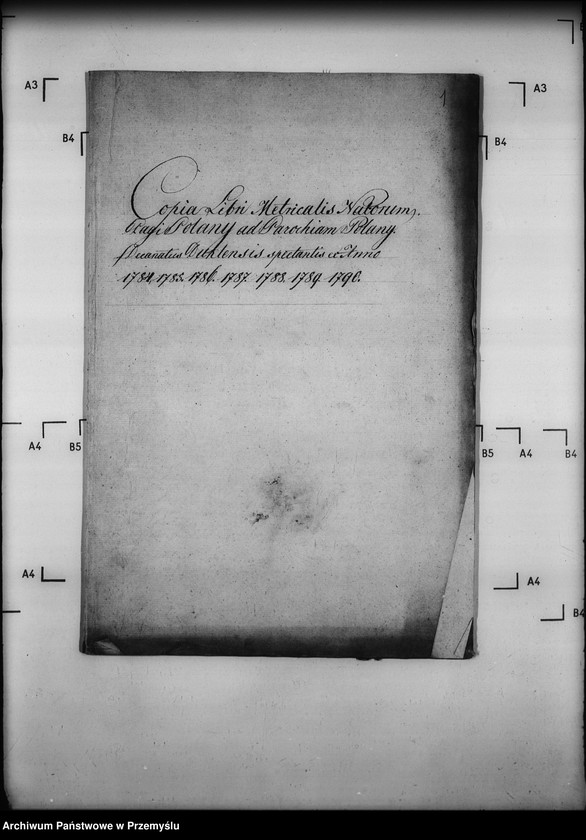 1
Copia Libri Metricalis Natorum
Pagi Polany ad Parochiam Polany
Decanatus Duklensis spectantis ex Anno
1784. 1785. 1786. 1787. 1788. 1789. 1790.
A3
A3
B4
B4
A4
B5
B5
A4
B4
A4
A4
B4
Archiwum Państwowe w Przemyślu